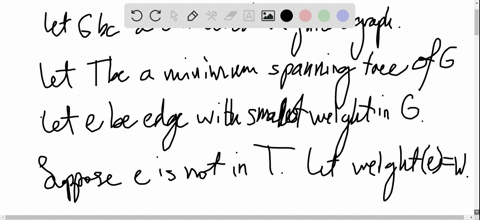 let G be a
let T be a minimum spanning tree of G
let e be edge with smallest weight in G.
Suppose e is not in T. let weight(e)=W.